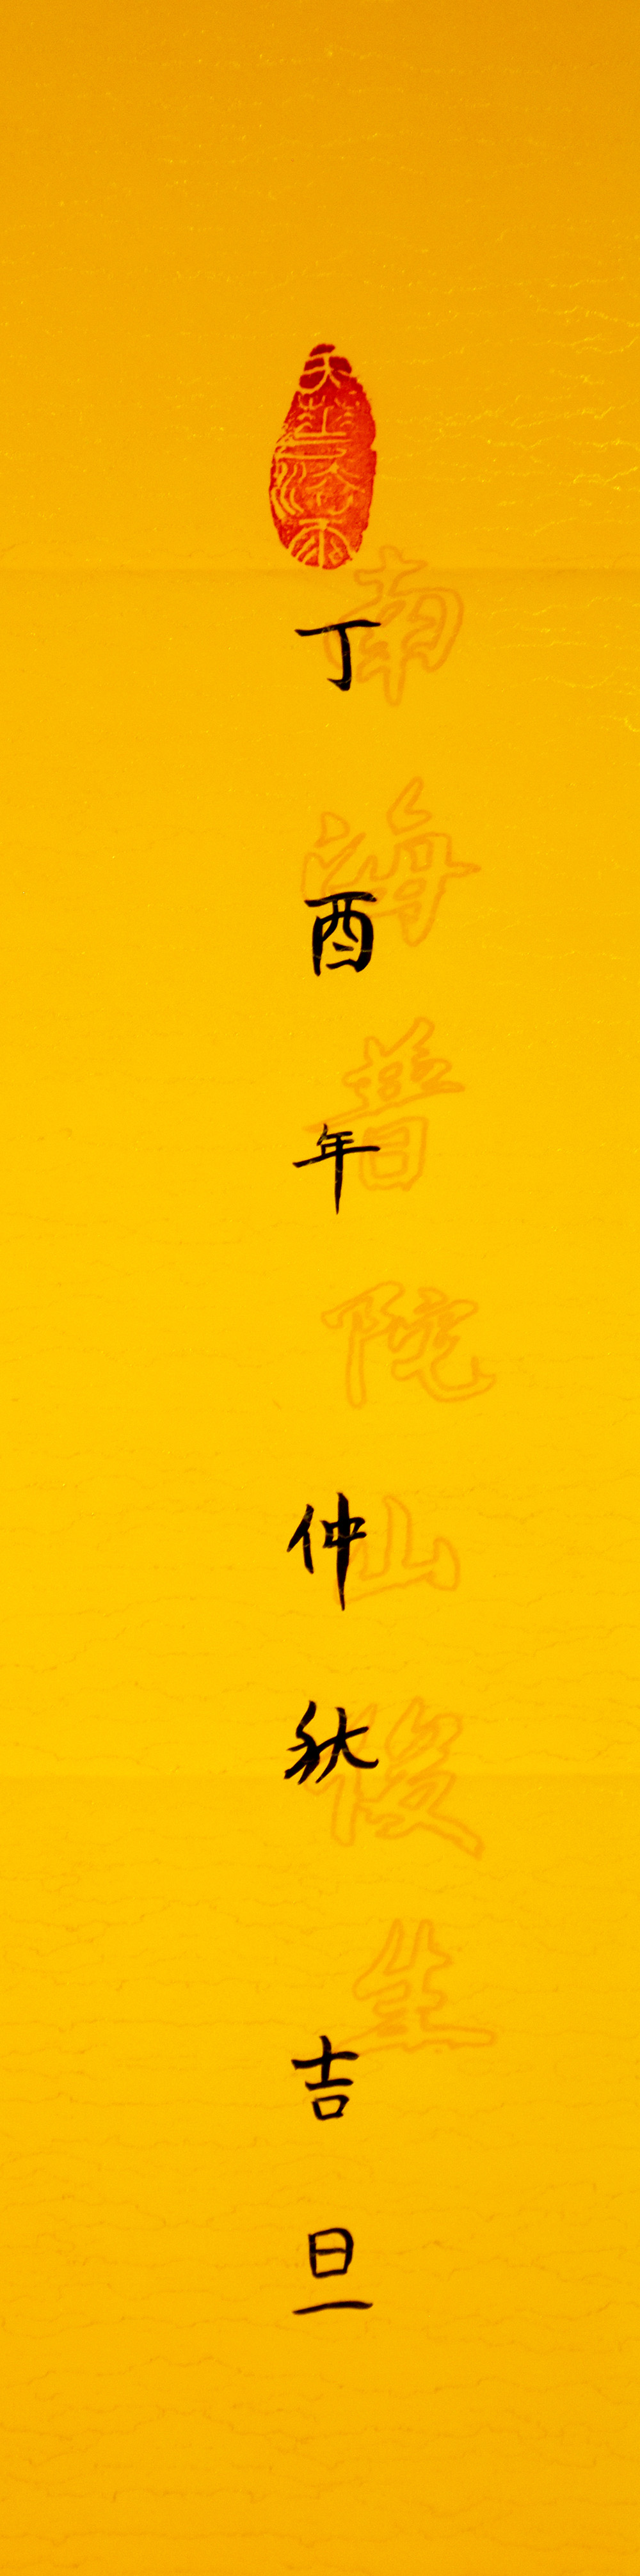 丁酉年仲秋吉旦
南海普陀山後生